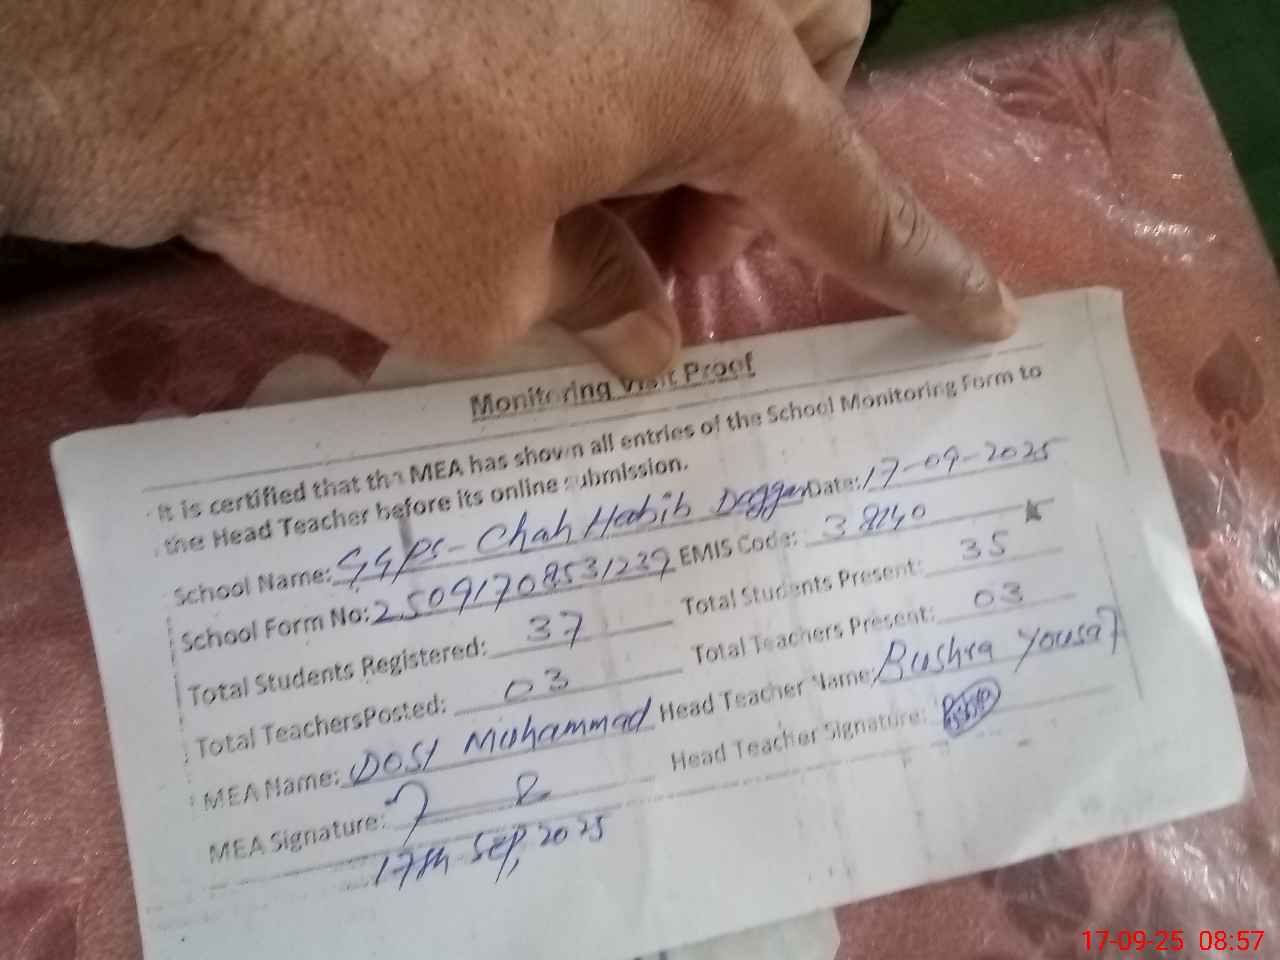 Monitoring Visit Proof
It is certified that the MEA has shown all entries of the School Monitoring Form to
the Head Teacher before its online submission.
School Name: GGPS- Chah Habib Daggar Date: 17-09-2025
School Form No: 25091708531239 EMIS Code: 38140
Total Students Registered: 37 Total Students Present: 35
Total TeachersPosted: 03 Total Teachers Present: 03
MEA Name: DOST Muhammad Head Teacher Name: Bushra Yousaf
MEA Signature: Head Teacher Signature:
17th Sep, 2025
17-09-25 08:57